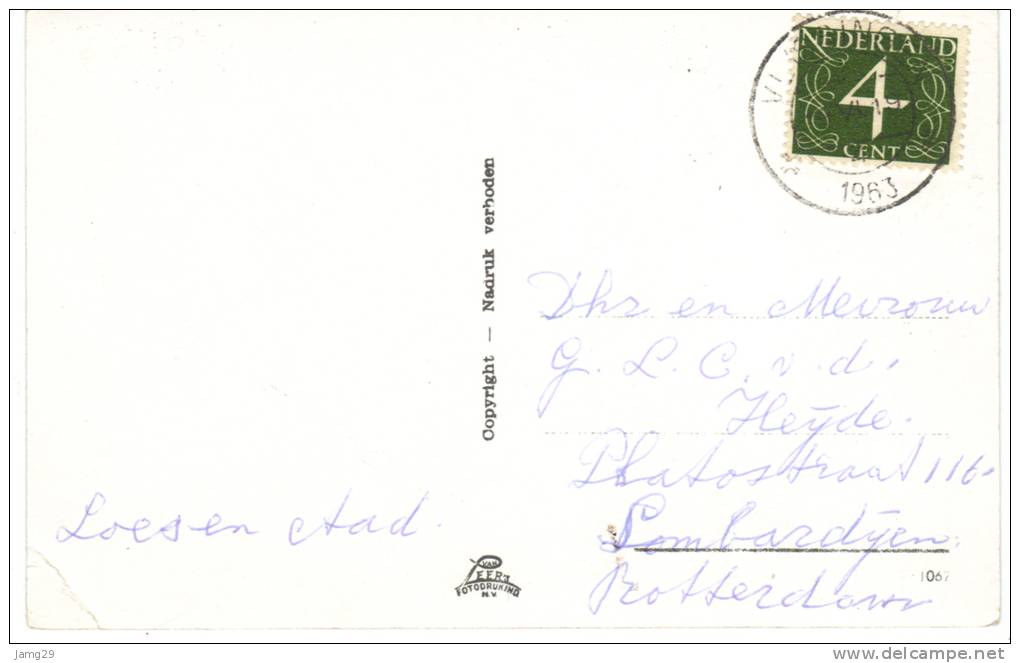 NEDERLAND
4
CENT
1963
Copyright — Nadruk verboden
Dhr en Mevrouw
G. L. C. v. d.
Heÿde.
Platostraat 116.
Lombardÿen.
Rotterdam
Loes en Aad.
VAN
LEER'S
FOTODRUKIND
N.V.
1067
Jamg29
www.delcampe.net